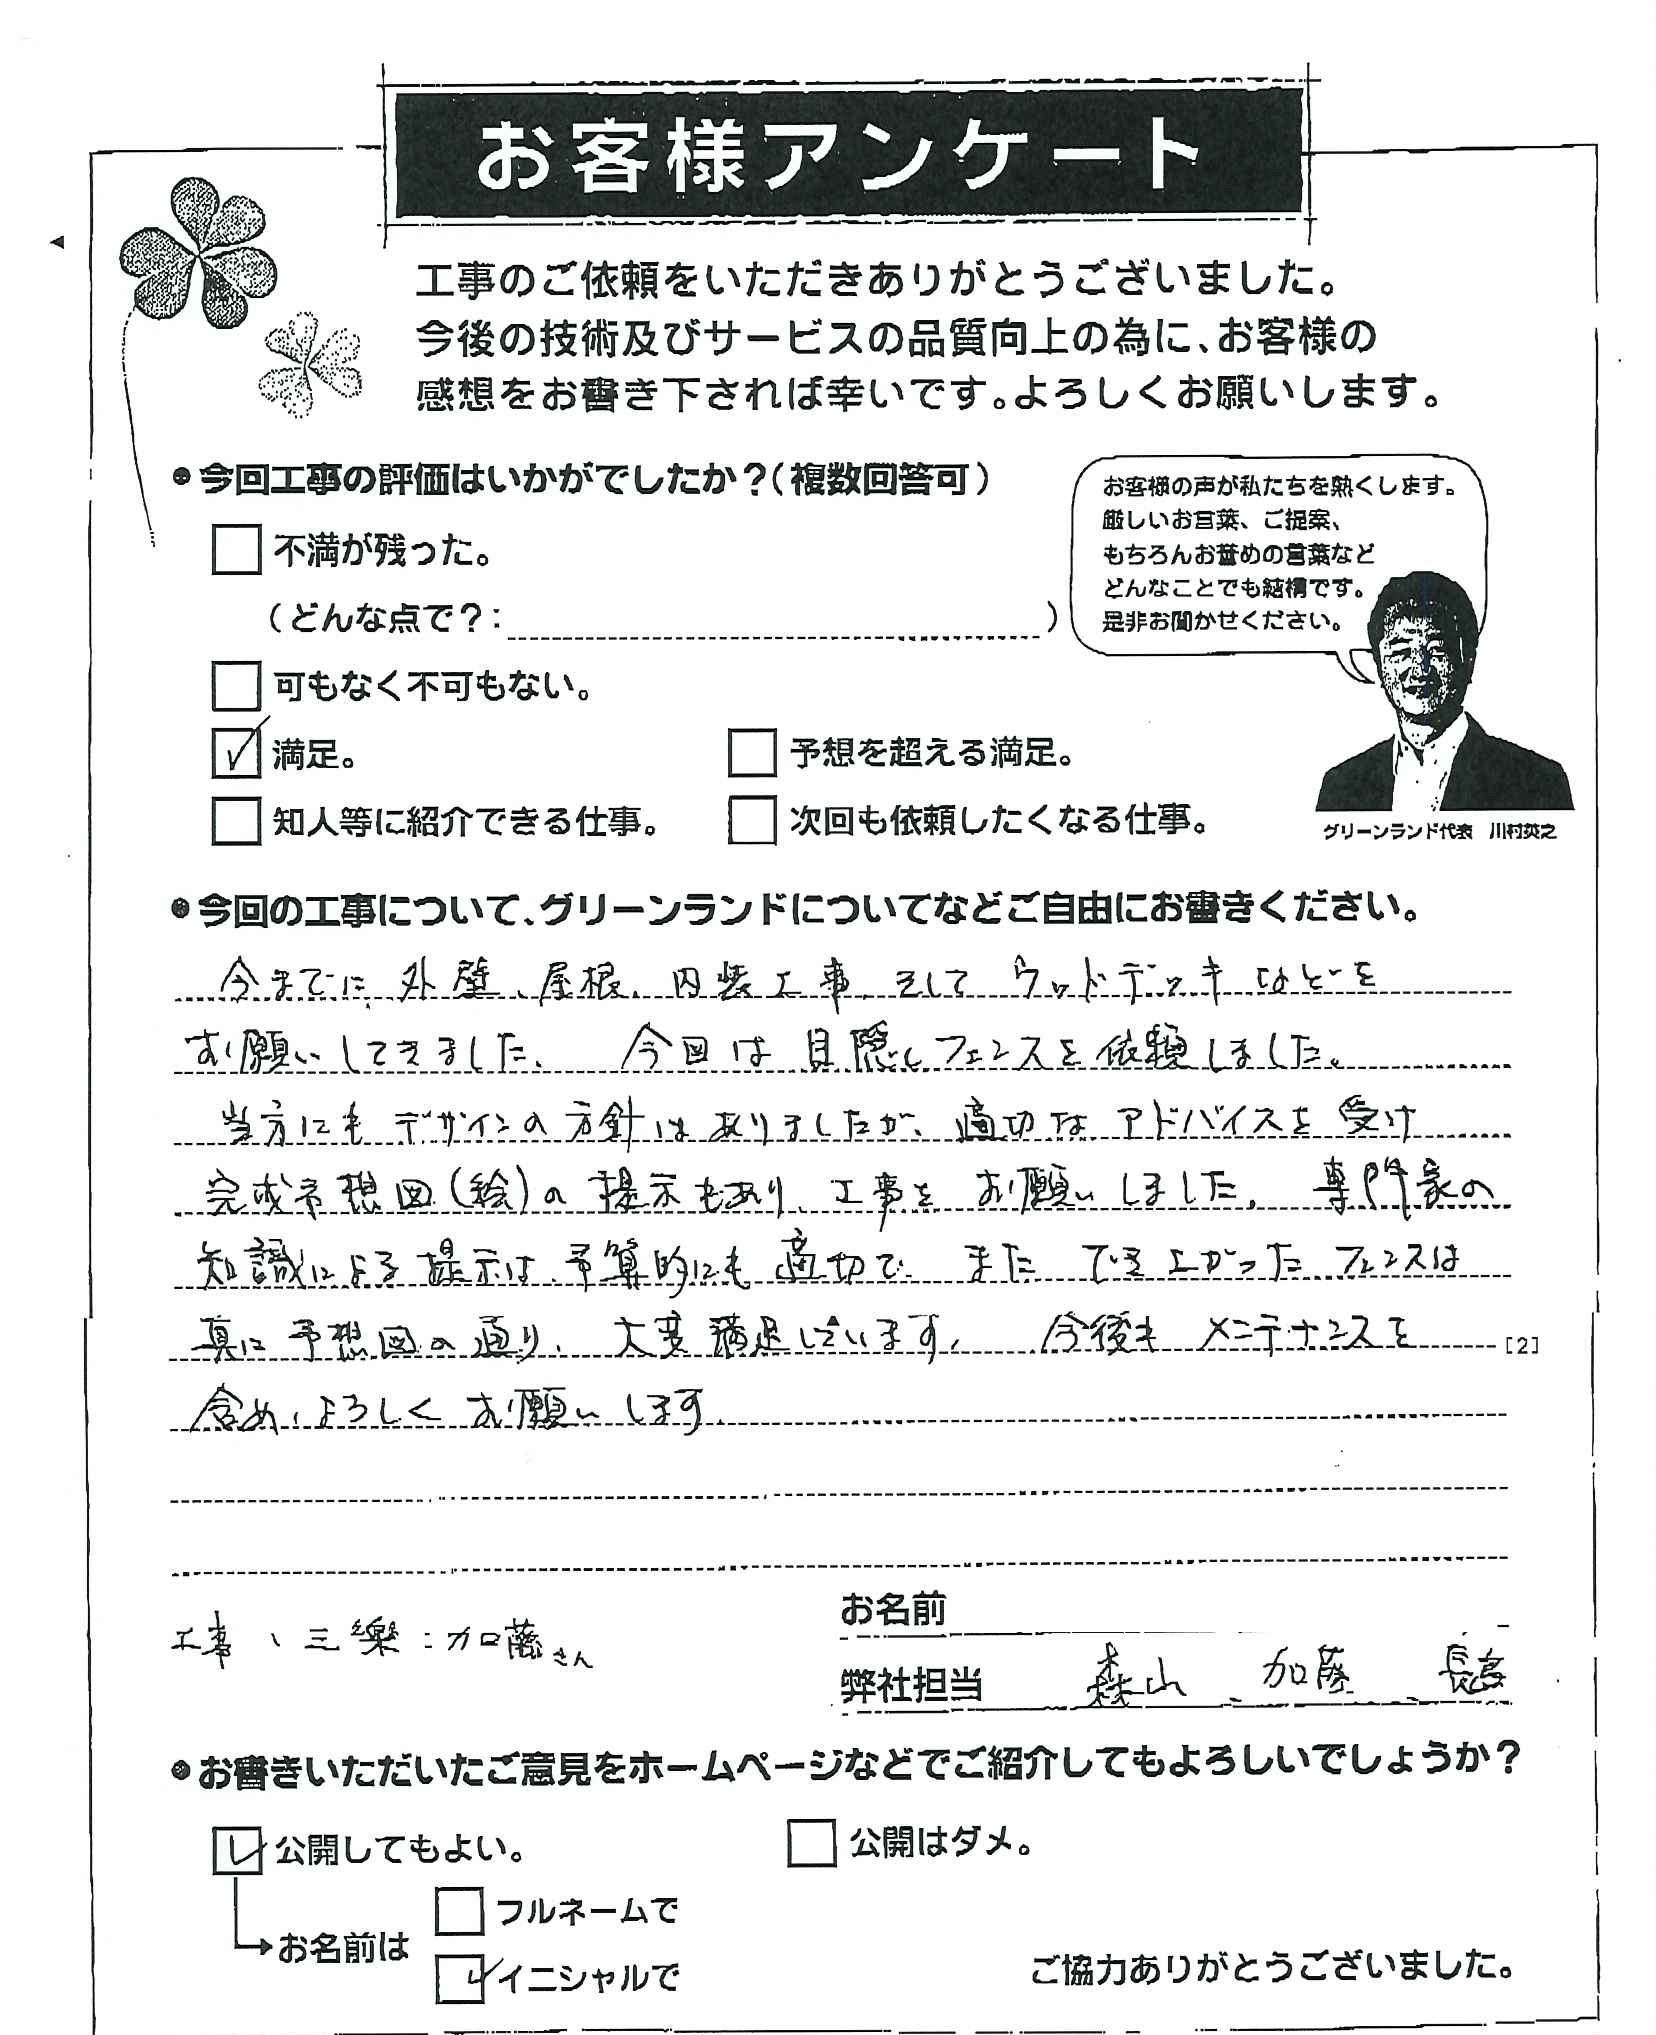 お客様アンケート
工事のご依頼をいただきありがとうございました。
今後の技術及びサービスの品質向上の為に、お客様の
感想をお書き下されば幸いです。よろしくお願いします。
●今回工事の評価はいかがでしたか？(複数回答可)
不満が残った。
(どんな点で？: )
可もなく不可もない。
満足。
予想を超える満足。
知人等に紹介できる仕事。
次回も依頼したくなる仕事。
お客様の声が私たちを熱くします。
厳しいお言葉、ご提案、
もちろんお誉めの言葉など
どんなことでも結構です。
是非お聞かせください。
グリーンランド代表 川村英之
●今回の工事について、グリーンランドについてなどご自由にお書きください。
今までに、外壁、屋根、内装工事、そして ウッドデッキ などを
お願いしてきました、 今回は 目隠しフェンスを依頼しました。
当方にも デザインの方針はありましたが、適切な アドバイスを 受け
完成予想図(絵)の 提示もあり、工事を お願いしました。専門家の
知識による提示は、予算的にも 適切で また でき上がった フェンスは
真に 予想図の通り、大変満足しています。 今後も メンテナンスを
[2]
含め、よろしく お願いします。
工事、三樂:加藤さん
お名前
弊社担当 森山 加藤 長島
●お書きいただいたご意見をホームページなどでご紹介してもよろしいでしょうか？
公開してもよい。
公開はダメ。
お名前は
フルネームで
イニシャルで
ご協力ありがとうございました。